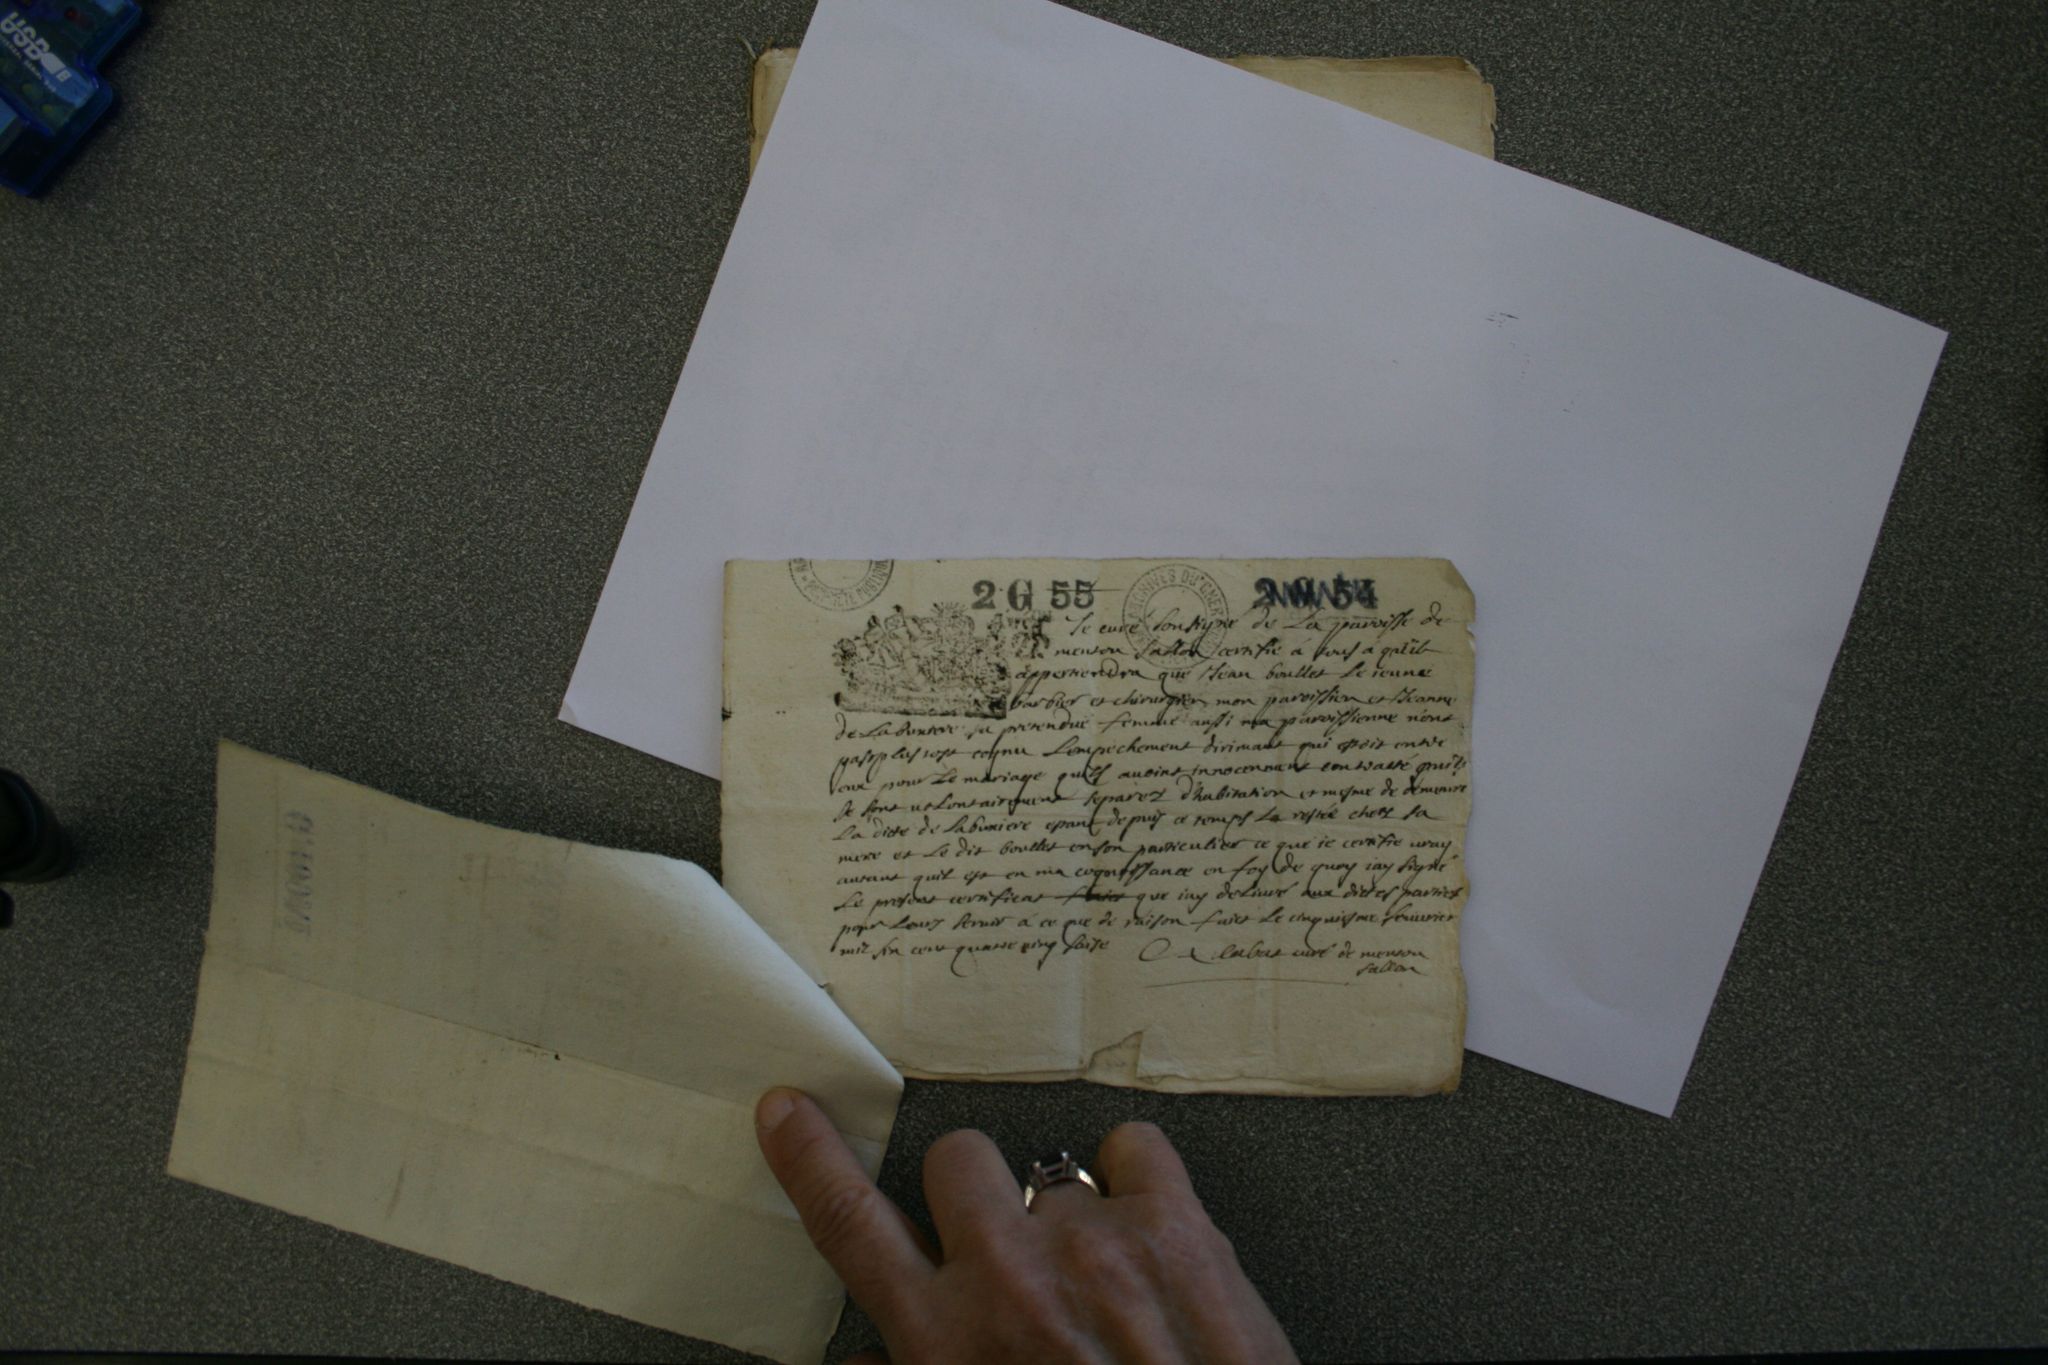 USB
2 G 55
2 G 54
ARCHIVES DU CHER
Je curé soubsigné de La paroisse de
meneton sallon certifie à tous à qu'il
appertiendra que Jean boullet Le ieune
barbier et chirurgien mon paroissien et Jeanne
de Labuxiere sa pretendue femme aussi ma paroissienne n'ont
pas plus tost cognu L'empechement dirimant qui estoit entre
eux pour Le mariage qu'ils avoint innocemment contracté qu'ils
se sont volontairement separez d'habitation et mesme de demeure
La dicte de Labuxiere estant depuis ce temps La restée chez sa
mere et Le dit boullet en son particulier ce que ie certifie vray
autant quil est en ma cognoissance en foy de quoy iay signé
Le present certificat que iay delivré aux dictes parties
pour Leurs servir à ce que de raison faict Le cinquiesme
mil six cent quatre ving saise
curé de meneton
sallon